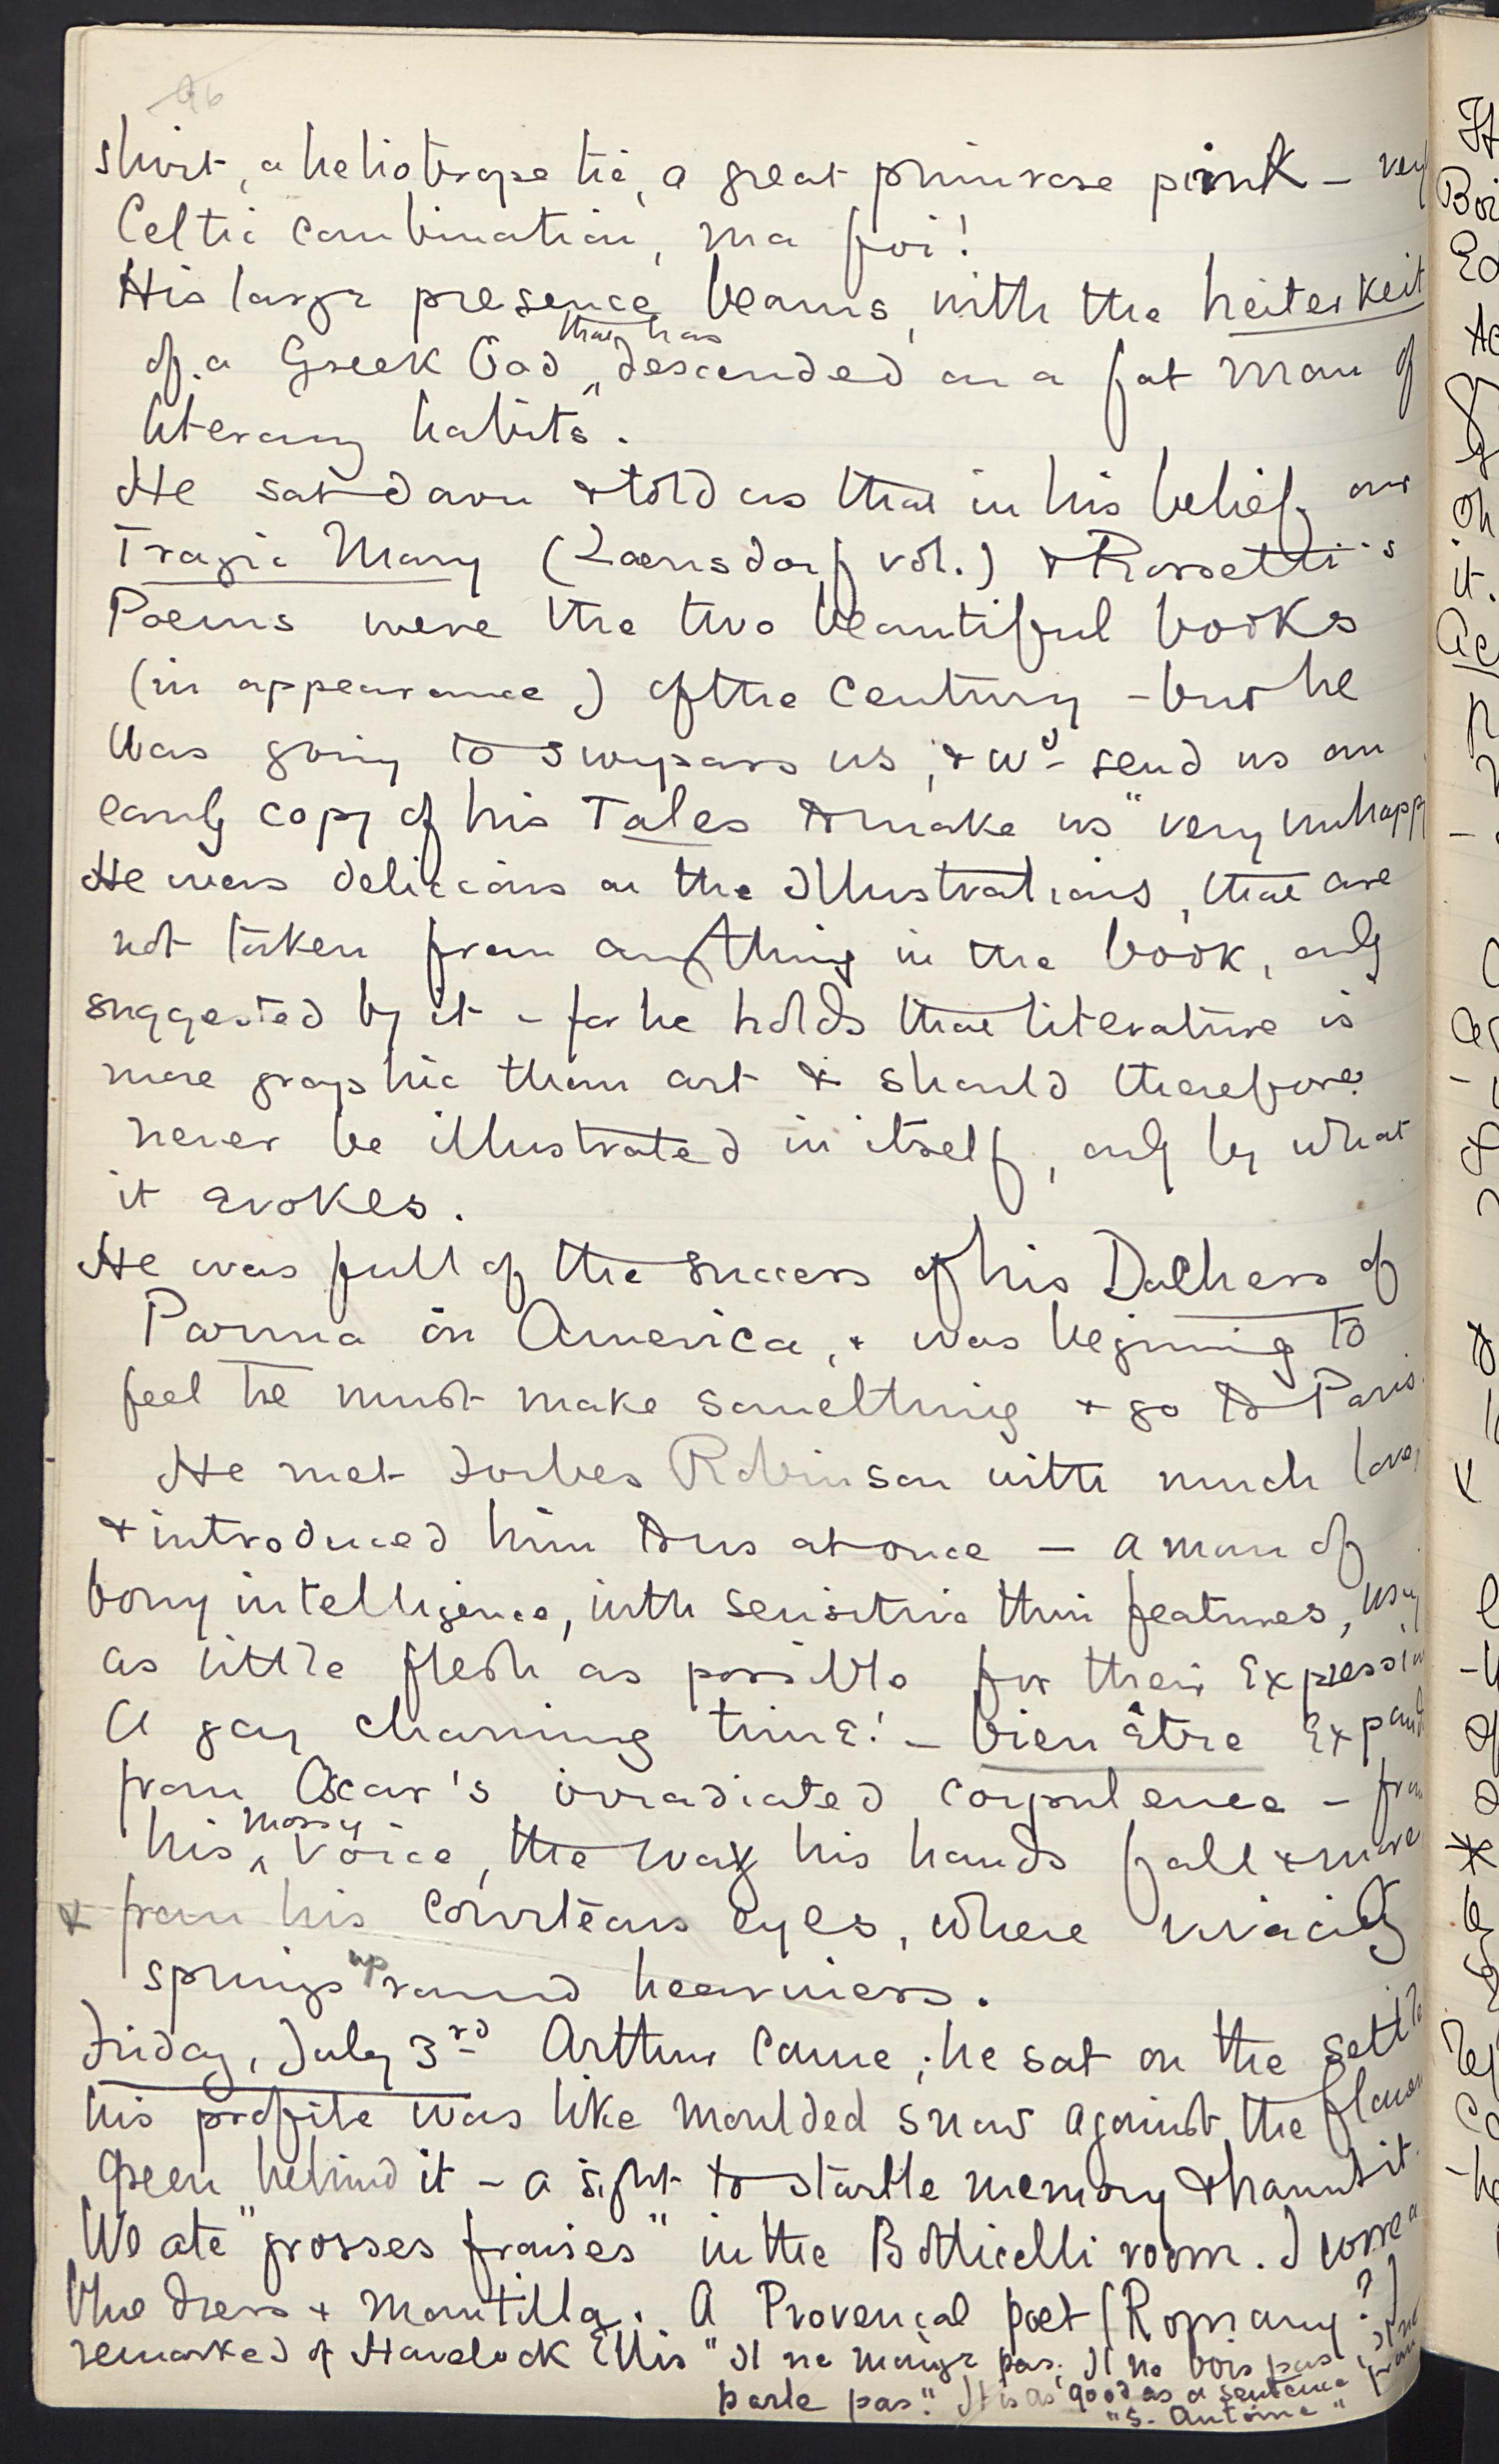 96
shirt, a heliotrope tie, a great primrose pink – very
Celtic combination, ma foi!
His large presence beams, with the heiterkeit
of a Greek God that has descended on a fat man of
literary habits.
He sat down & told us that in his belief our
Tragic Mary ( vol.) & Rossetti's
Poems were the two beautiful books
(in appearance) of the century – but he
was going to surpass us, & wd send us an
early copy of his Tales to make us "very unhappy
He was delicious on the illustrations, that are
not taken from anything in the book, only
suggested by it – for he holds that literature is
more graphic than art & should therefore
never be illustrated in itself, only by what
it evokes.
He was full of the success of his Duchess of
Parma in America, & was beginning to
feel he must make something & go to Paris.
He met Forbes Robinson with much love,
& introduced him to us at once – a man of
bony intelligence, with sensitive thin features, using
as little flesh as possible for their expression
A gay charming time! – bien être expands
from Oscar's irradiated corpulence – from
his mossy voice, the way his hands fall & move
& from his courteous eyes, where vivacity
springs up round heaviness.
Friday, July 3rd Arthur came; he sat on the settle
his profile was like moulded snow against the
green behind it – a sight to startle memory & haunt it.
We ate "grosses fraises" in the Botticelli room. I wore a
blue dress & mantilla. A Provençal poet (Romany?)
remarked of Havelock Ellis "Il ne mange pas; Il ne bois pas, Il ne
parle pas." It is as good as a sentence from
"S. Antoine"